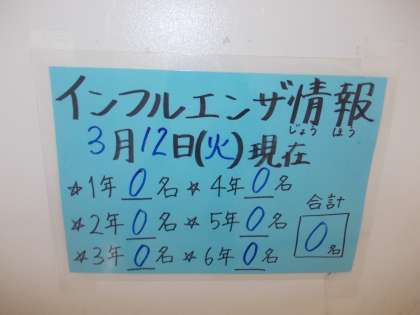 インフルエンザ情報
じょう ほう
3月12日(火)現在
☆1年 0名 ☆4年 0名
☆2年 0名 ☆5年 0名
☆3年 0名 ☆6年 0名
合計
0名